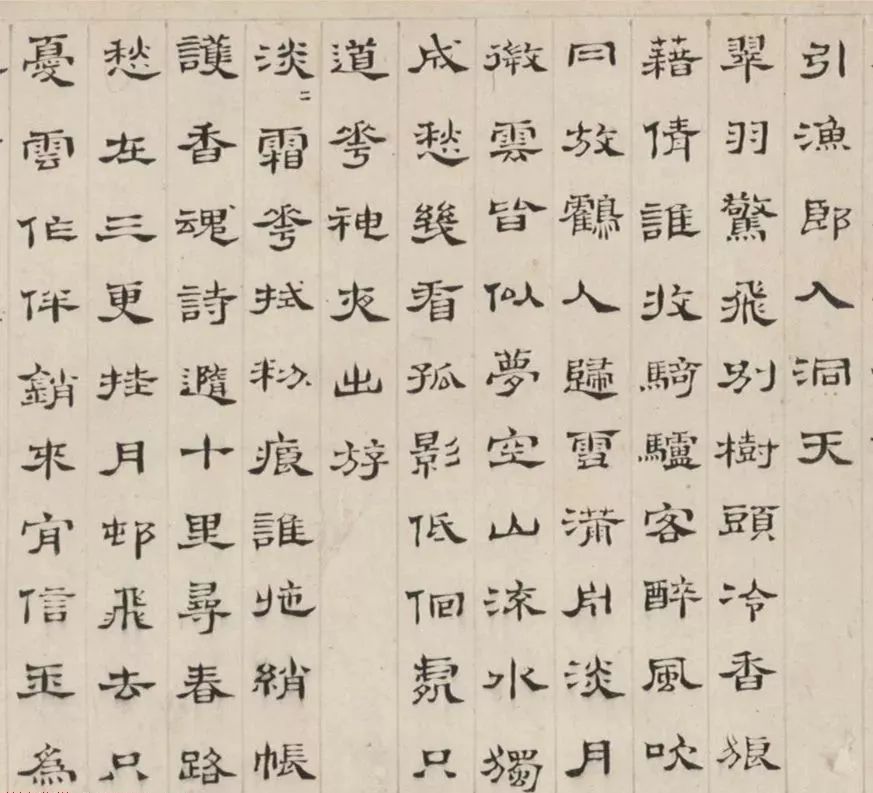 引漁郎入洞天
翠羽驚飛別樹頭冷香狼
藉倩誰收騎驢客醉風吹
冃放鶴人歸雪滿舟淡月
微雲皆似夢空山流水獨
成愁幾看孤影低佪處只
道華神夜出游
淡二霜華拭粉痕誰施綃帳
護香魂詩隨十里尋春路
愁在三更挂月邨飛去只
憂雲作伴銷來肯信玉為